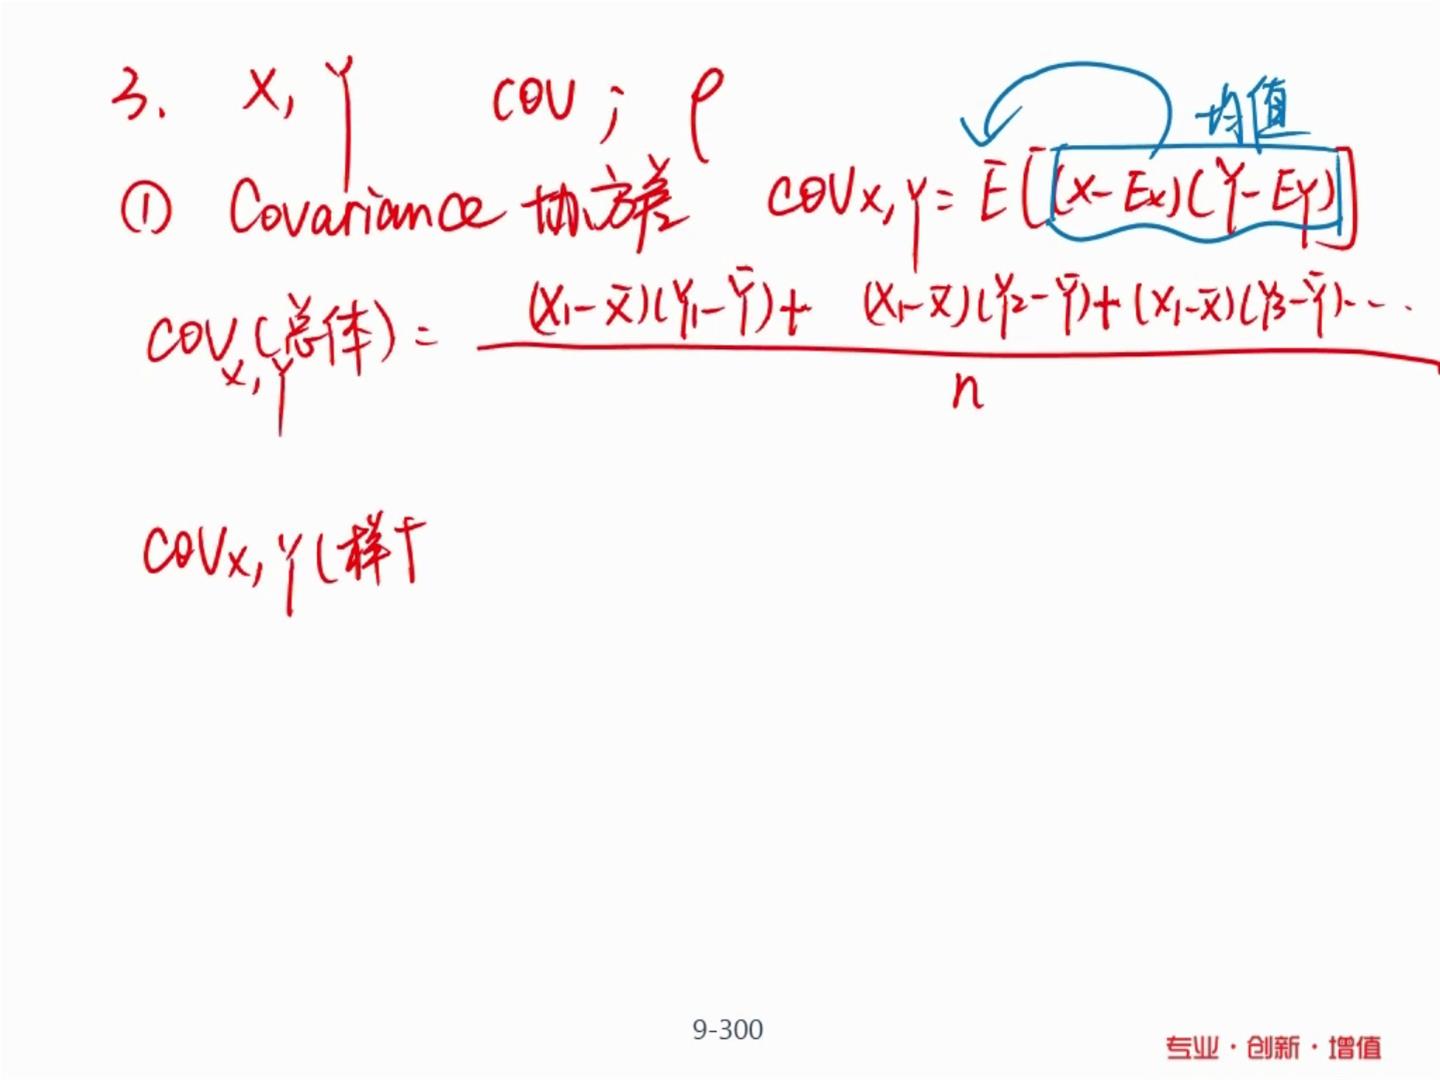 3. X, Y COV ; ρ
① Covariance 协方差 COVx,y = E[(x-Ex)(Y-Ey)] 均值
COVx,Y(总体) = (X1-X̄)(Y1-Ȳ)+ (X1-X̄)(Y2-Ȳ)+(X1-X̄)(Y3-Ȳ)...
n
COVx,Y(样
9-300
专业·创新·增值